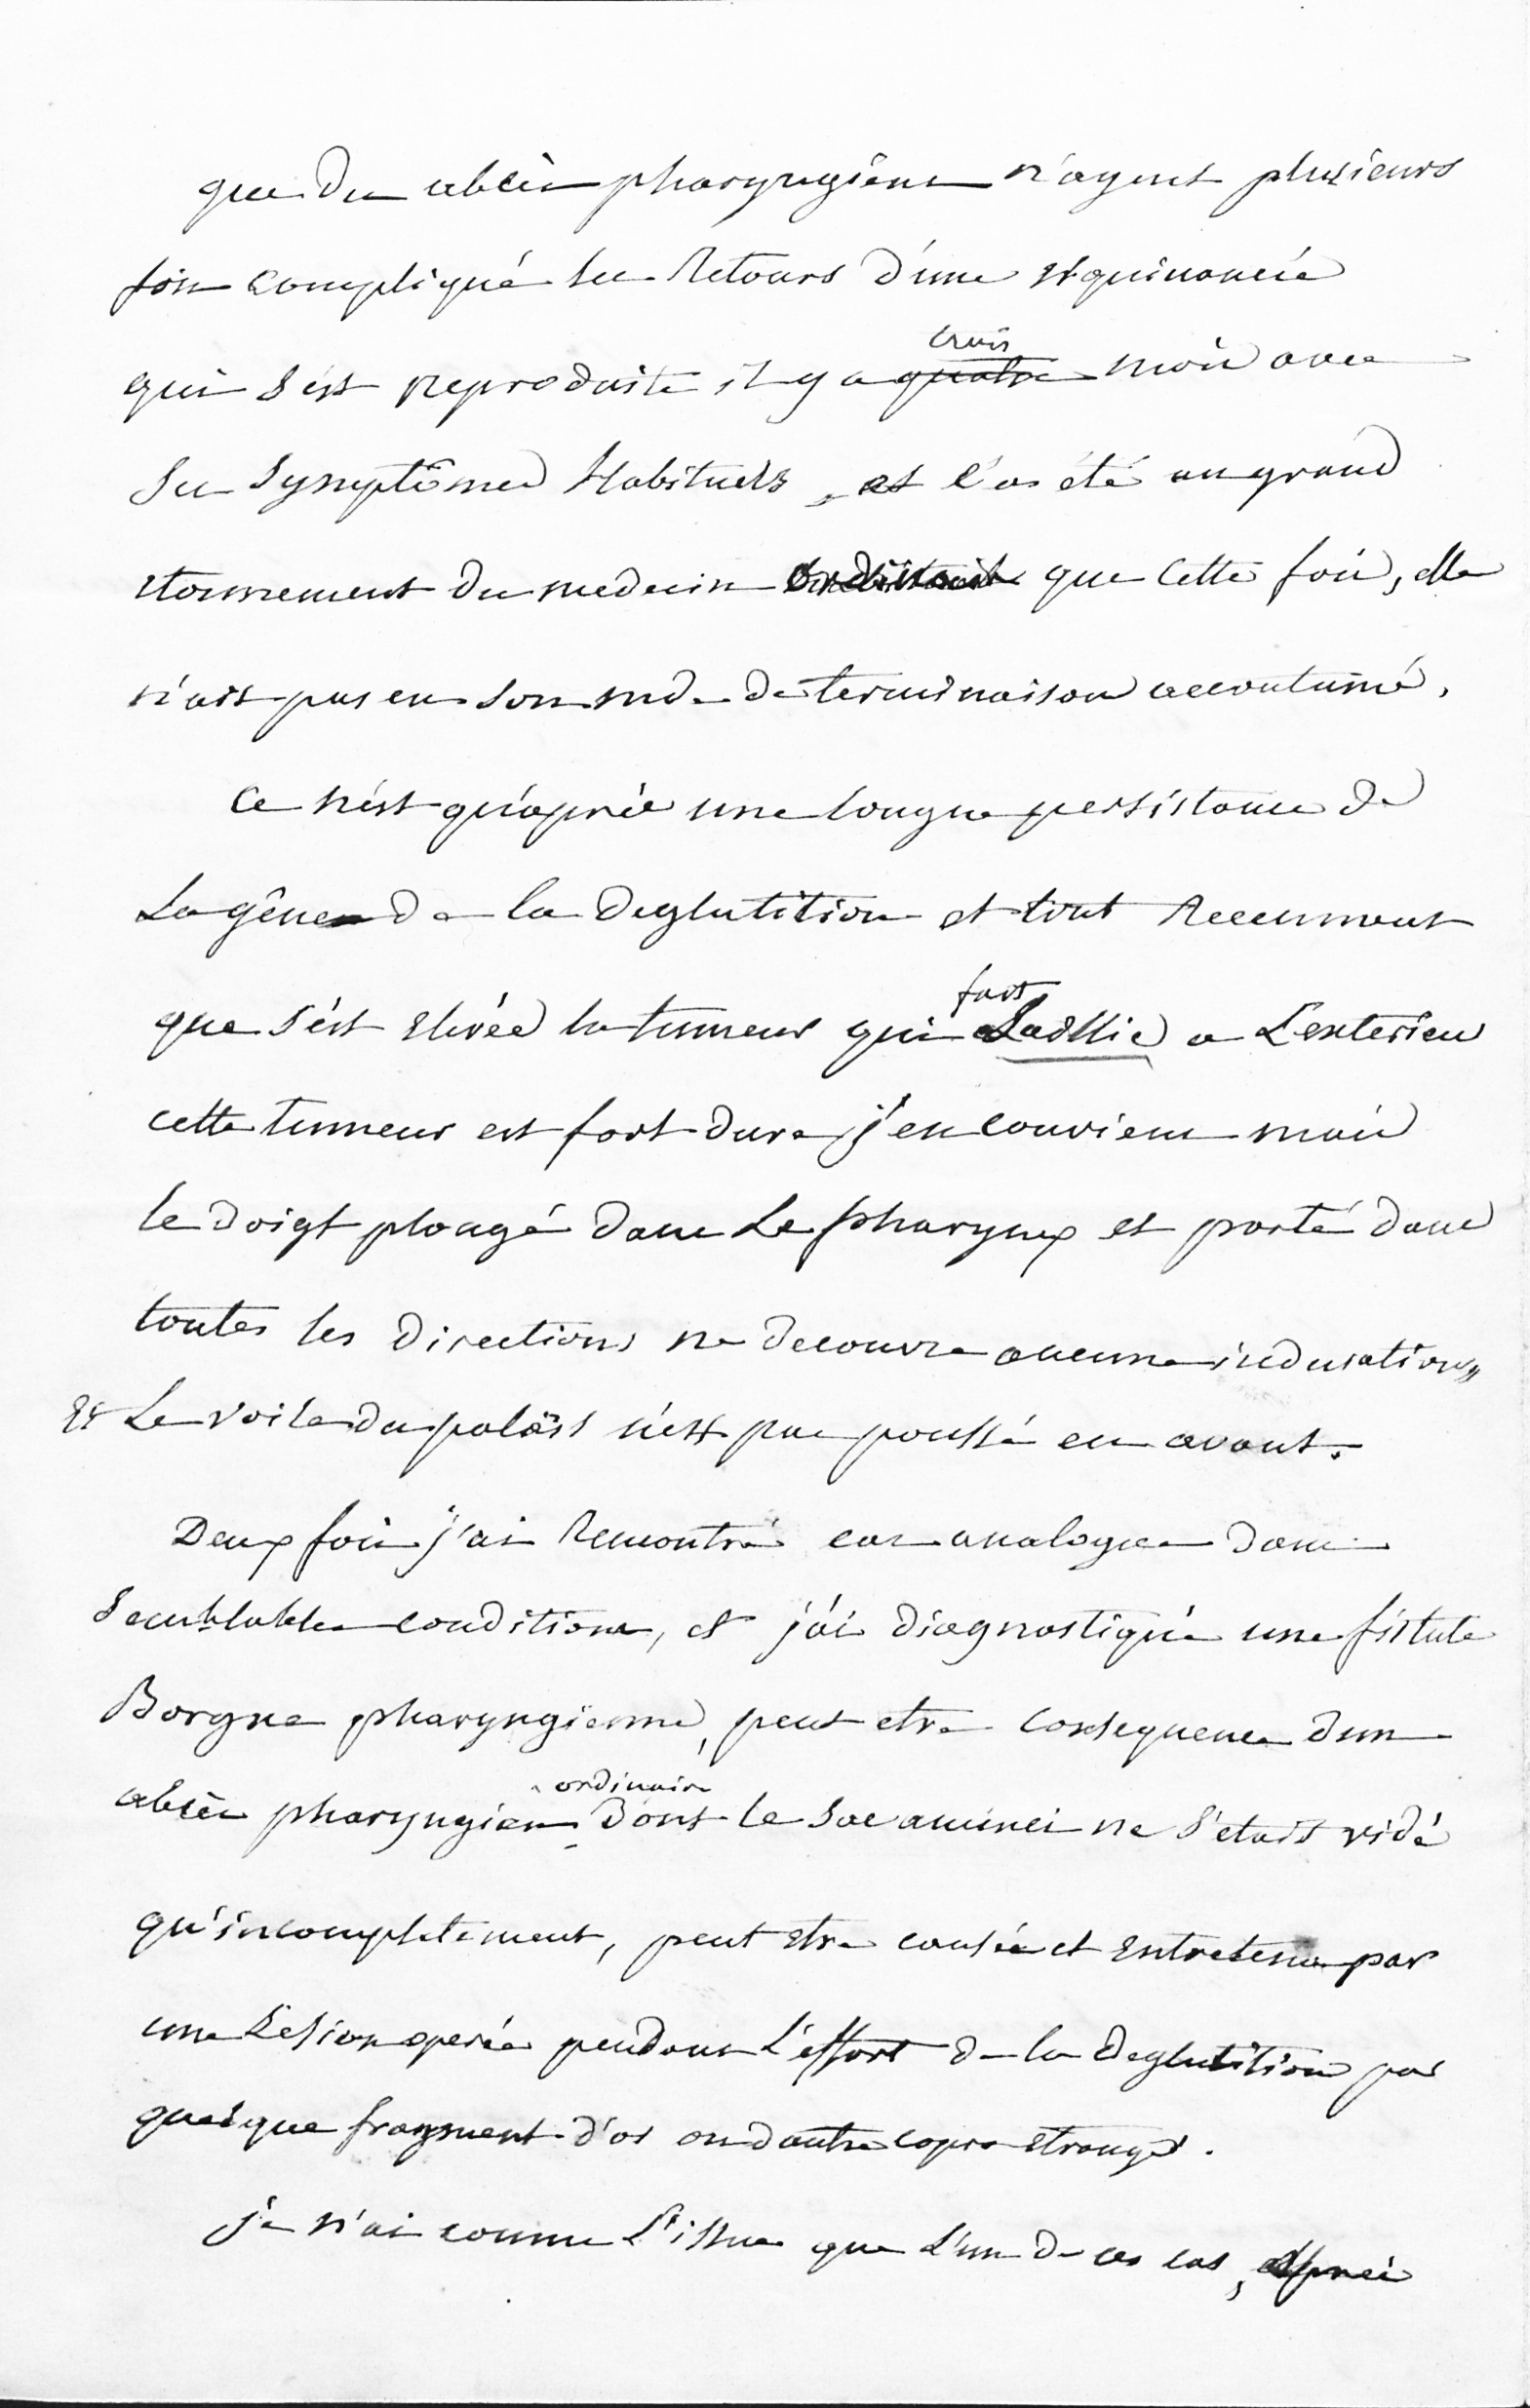 que des abcès pharyngiens n'ayent plusieurs
fois compliqué les Retours d'une esquinancie
qui s'est reproduite il y a quatre trois mois avec
ses symptômes Habituels, et ç'a été au grand
etonnement du medecin que cette fois, elle
n'ait pas eu son mode de terminaison accoutumé.
Ce n'est qu'après une longue persistance de
La gêne de la deglutition et tout Recemment
que s'est elevée la tumeur qui fait Saillie a L'exterieur
cette tumeur est fort dure j'en conviens mais
le doigt plongé dans Le pharynx et porté dans
toutes les directions ne decouvre aucune induration,
Et Le voile du palais n'est pas poussé en avant.
Deux fois j'ai Rencontré cas analogues dans
semblables conditions, et j'ai diagnostiqué une fistule
Borgne pharyngienne, peut etre consequence dun
abcès pharyngien ordinaire Dont le sac aminci ne s'etait vidé
qu'incompletement, peut etre causée et entretenue par
une Lesion operée pendant L'effort de la deglutition par
quelque fragment d'os ou dautre corps etranger.
je n'ai connu L'issue que L'un de ces cas, après